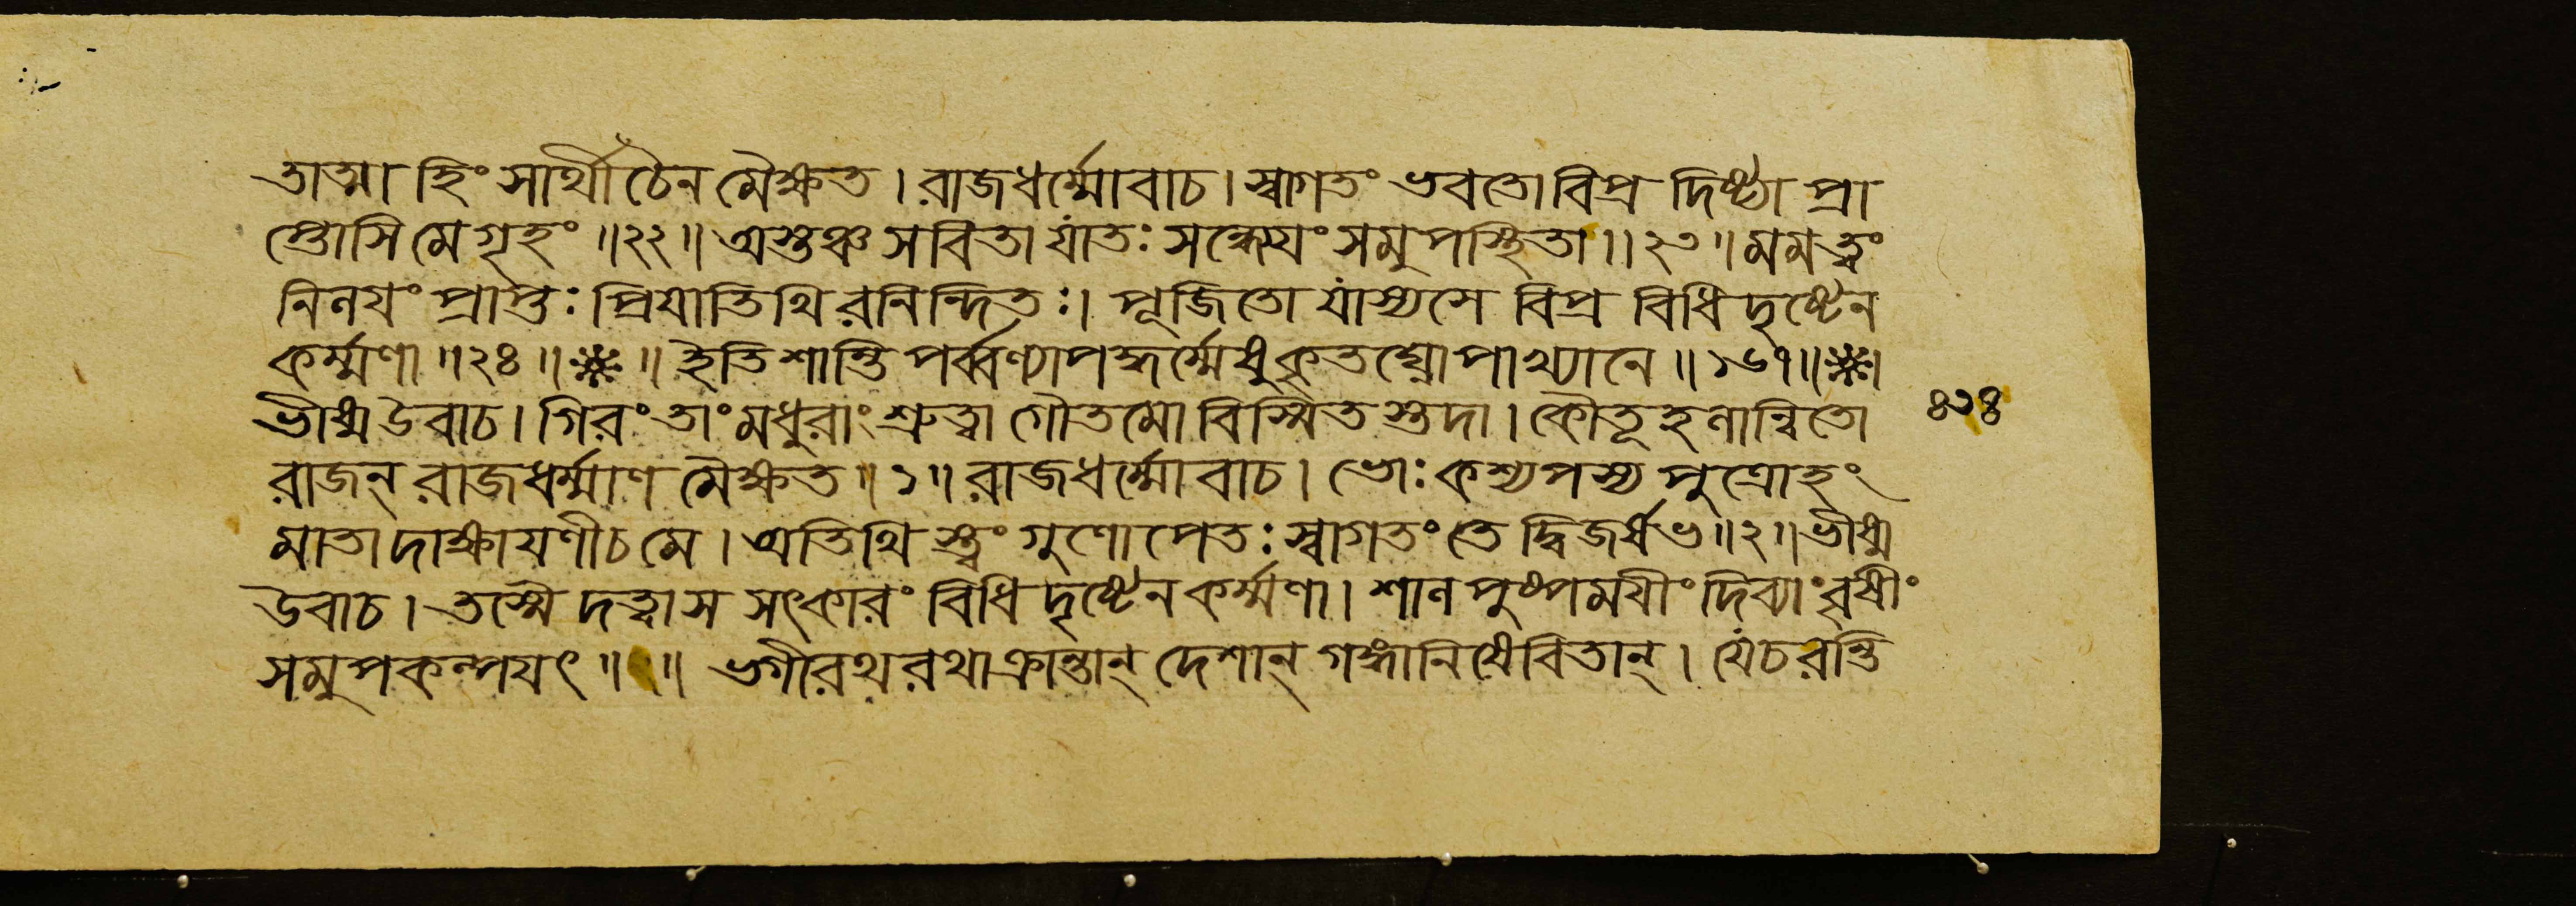 তাত্মা হিংসার্থী চৈন মৈক্ষত । রাজধর্ম্মোবাচ । স্বাগতং ভবতো বিপ্র দিষ্ট্যা প্রা
প্তোসি মে গৃহং ॥২২॥ অস্তঞ্চ সবিতা যাতঃ সন্ধ্যেযং সমুপস্থিতা ॥২৩॥ মমত্বং
নিলযং প্রাপ্তঃ প্রিযাতিথি রনিন্দিতঃ । পূজিতো যাস্যসে বিপ্র বিধি দৃষ্টেন
কর্ম্মণা ॥২৪॥ ❋ ॥ ইতি শান্তি পর্ব্বণ্যাপদ্ধর্ম্মেষু কৃতঘ্নোপাখ্যানে ॥১৬৭॥❋।
ভীষ্ম উবাচ । গিরং তাং মধুরাং শ্রুত্বা গৌতমো বিস্মিত স্তদা । কৌতূহলান্বিতো
৪১৪
রাজন্ রাজধর্ম্মাণ মৈক্ষত ॥১॥ রাজধর্ম্মোবাচ । ভোঃ কশ্যপস্য পুত্রোহং
মাতা দাক্ষাযণী চ মে । অতিথি স্ত্বং গুণোপেতঃ স্বাগতং তে দ্বিজর্ষভ ॥২॥ ভীষ্ম
উবাচ । তস্মৈ দত্বা স সৎকারং বিধি দৃষ্টেন কর্ম্মণা । শাল পুষ্পমযীং দিব্যাং বৃষীং
সমুপকল্পযৎ ॥ ॥ ভগীরথ রথাক্রান্তান্ দেশান্ গঙ্গানিষেবিতান্ । যেচরন্তি